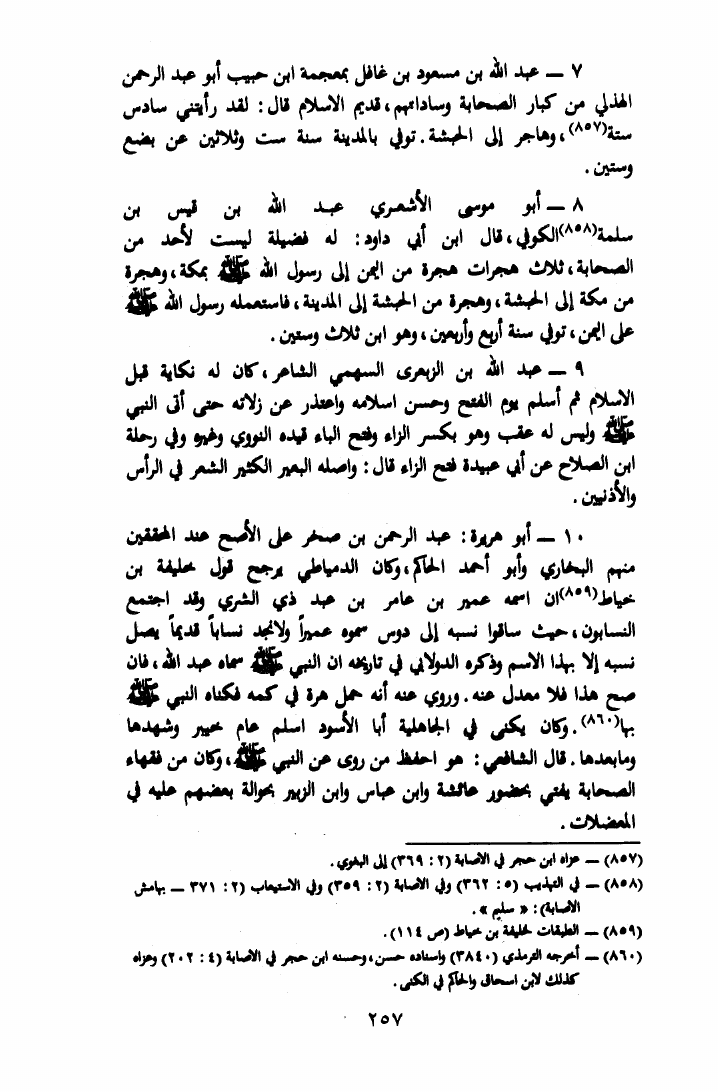 ٧ ــ عبد الله بن مسعود بن غافل بمعجمة ابن حبيب أبو عبد الرحمن
الهذلي من كبار الصحابة وساداتهم، قديم الاسلام قال: لقد رأيتني سادس
ستة(٨٥٧)، وهاجر إلى الحبشة. توفي بالمدينة سنة ست وثلاثين عن بضع
وستين.
٨ ــ أبو موسى الأشعري عبد الله بن قيس بن
سلمة(٨٥٨)الكوفي، قال ابن أبي داود: له فضيلة ليست لأحد من
الصحابة، ثلاث هجرات هجرة من اليمن إلى رسول الله ﷺ بمكة، وهجرة
من مكة إلى الحبشة، وهجرة من الحبشة إلى المدينة، فاستعمله رسول الله ﷺ
على اليمن، توفي سنة أربع وأربعين، وهو ابن ثلاث وستين.
٩ ــ عبد الله بن الزبعرى السهمي الشاعر، كان له نكاية قبل
الاسلام ثم أسلم يوم الفتح وحسن اسلامه واعتذر عن زلاته حتى أتى النبي
ﷺ وليس له عقب وهو بكسر الزاء وفتح الباء قيده النووي وغيره وفي رحلة
ابن الصلاح عن أبي عبيدة فتح الزاء قال: واصله البعير الكثير الشعر في الرأس
والأذنيين.
١٠ ــ أبو هريرة: عبد الرحمن بن صخر على الأصح عند المحققين
منهم البخاري وأبو أحمد الحاكم، وكان الدمياطي يرجح قول خليفة بن
خياط(٨٥٩)ان اسمه عمير بن عامر بن عبد ذي الشري وقد اجتمع
النسابون، حيث ساقوا نسبه إلى دوس سموه عميراً ولانجد نساباً قديماً يصل
نسبه إلا بهذا الاسم وذكره الدولابي في تاريخه ان النبي ﷺ سماه عبد الله، فان
صح هذا فلا معدل عنه. وروي عنه أنه حمل هرة في كمه فكناه النبي ﷺ
بها(٨٦٠). وكان يكنى في الجاهلية أبا الأسود اسلم عام خيبر وشهدها
ومابعدها. قال الشافعي: هو احفظ من روى عن النبي ﷺ، وكان من فقهاء
الصحابة يفتي بحضور عائشة وابن عباس وابن الزبير بحوالة بعضهم عليه في
المعضلات.
(٨٥٧) ــ عزاه ابن حجر في الاصابة (٢: ٣٦٩) إلى البغوي.
(٨٥٨) ــ في التهذيب (٥: ٣٦٢) وفي الاصابة (٢: ٣٥٩) وفي الاستيعاب (٢: ٣٧١ ــ بهامش
الاصابة): « سليم ».
(٨٥٩) ــ الطبقات لخليفة بن خياط (ص ١١٤).
(٨٦٠) ــ أخرجه الترمذي (٣٨٤٠) واسناده حسن، وحسنه ابن حجر في الاصابة (٤: ٢٠٢) وعزاه
كذلك لابن اسحاق والحاكم في الكنى.
٢٥٧